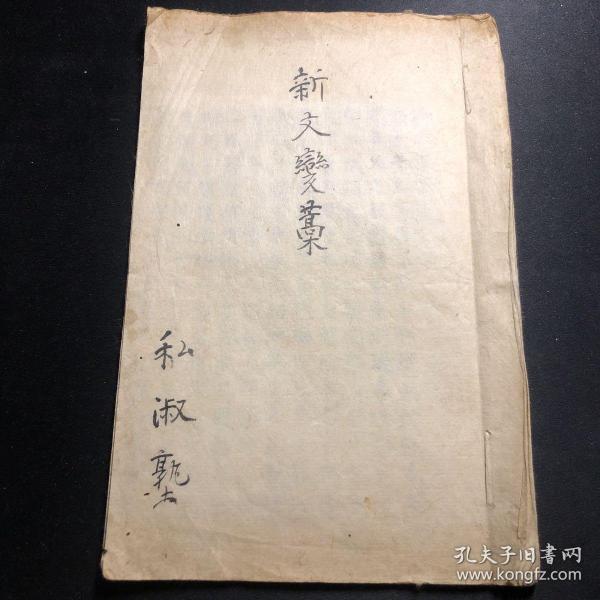 新文變藁
私淑塾
孔夫子旧書网
www.kongfz.com